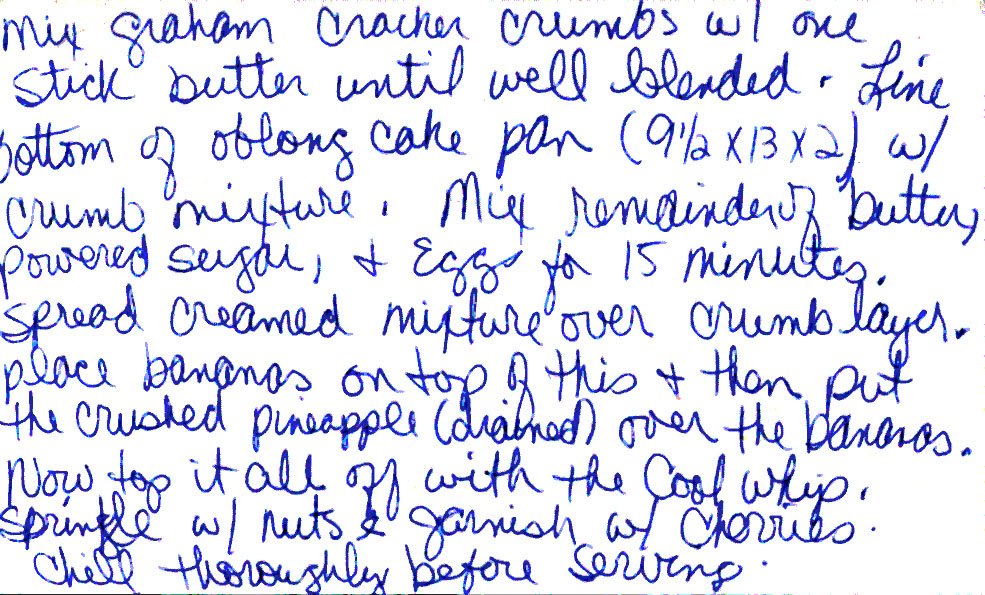 Mix graham cracker crumbs w/ one
stick butter until well blended. Line
bottom of oblong cake pan (9½ x 13 x 2) w/
crumb mixture. Mix remainder of butter,
powered sugar, & Eggs for 15 minutes.
spread creamed mixture over crumb layer.
place bananas on top of this & then put
the crushed pineapple (drained) over the bananas.
Now top it all off with the Cool Whip.
Sprinkle w/ nuts & garnish w/ cherries.
Chill thoroughly before serving.